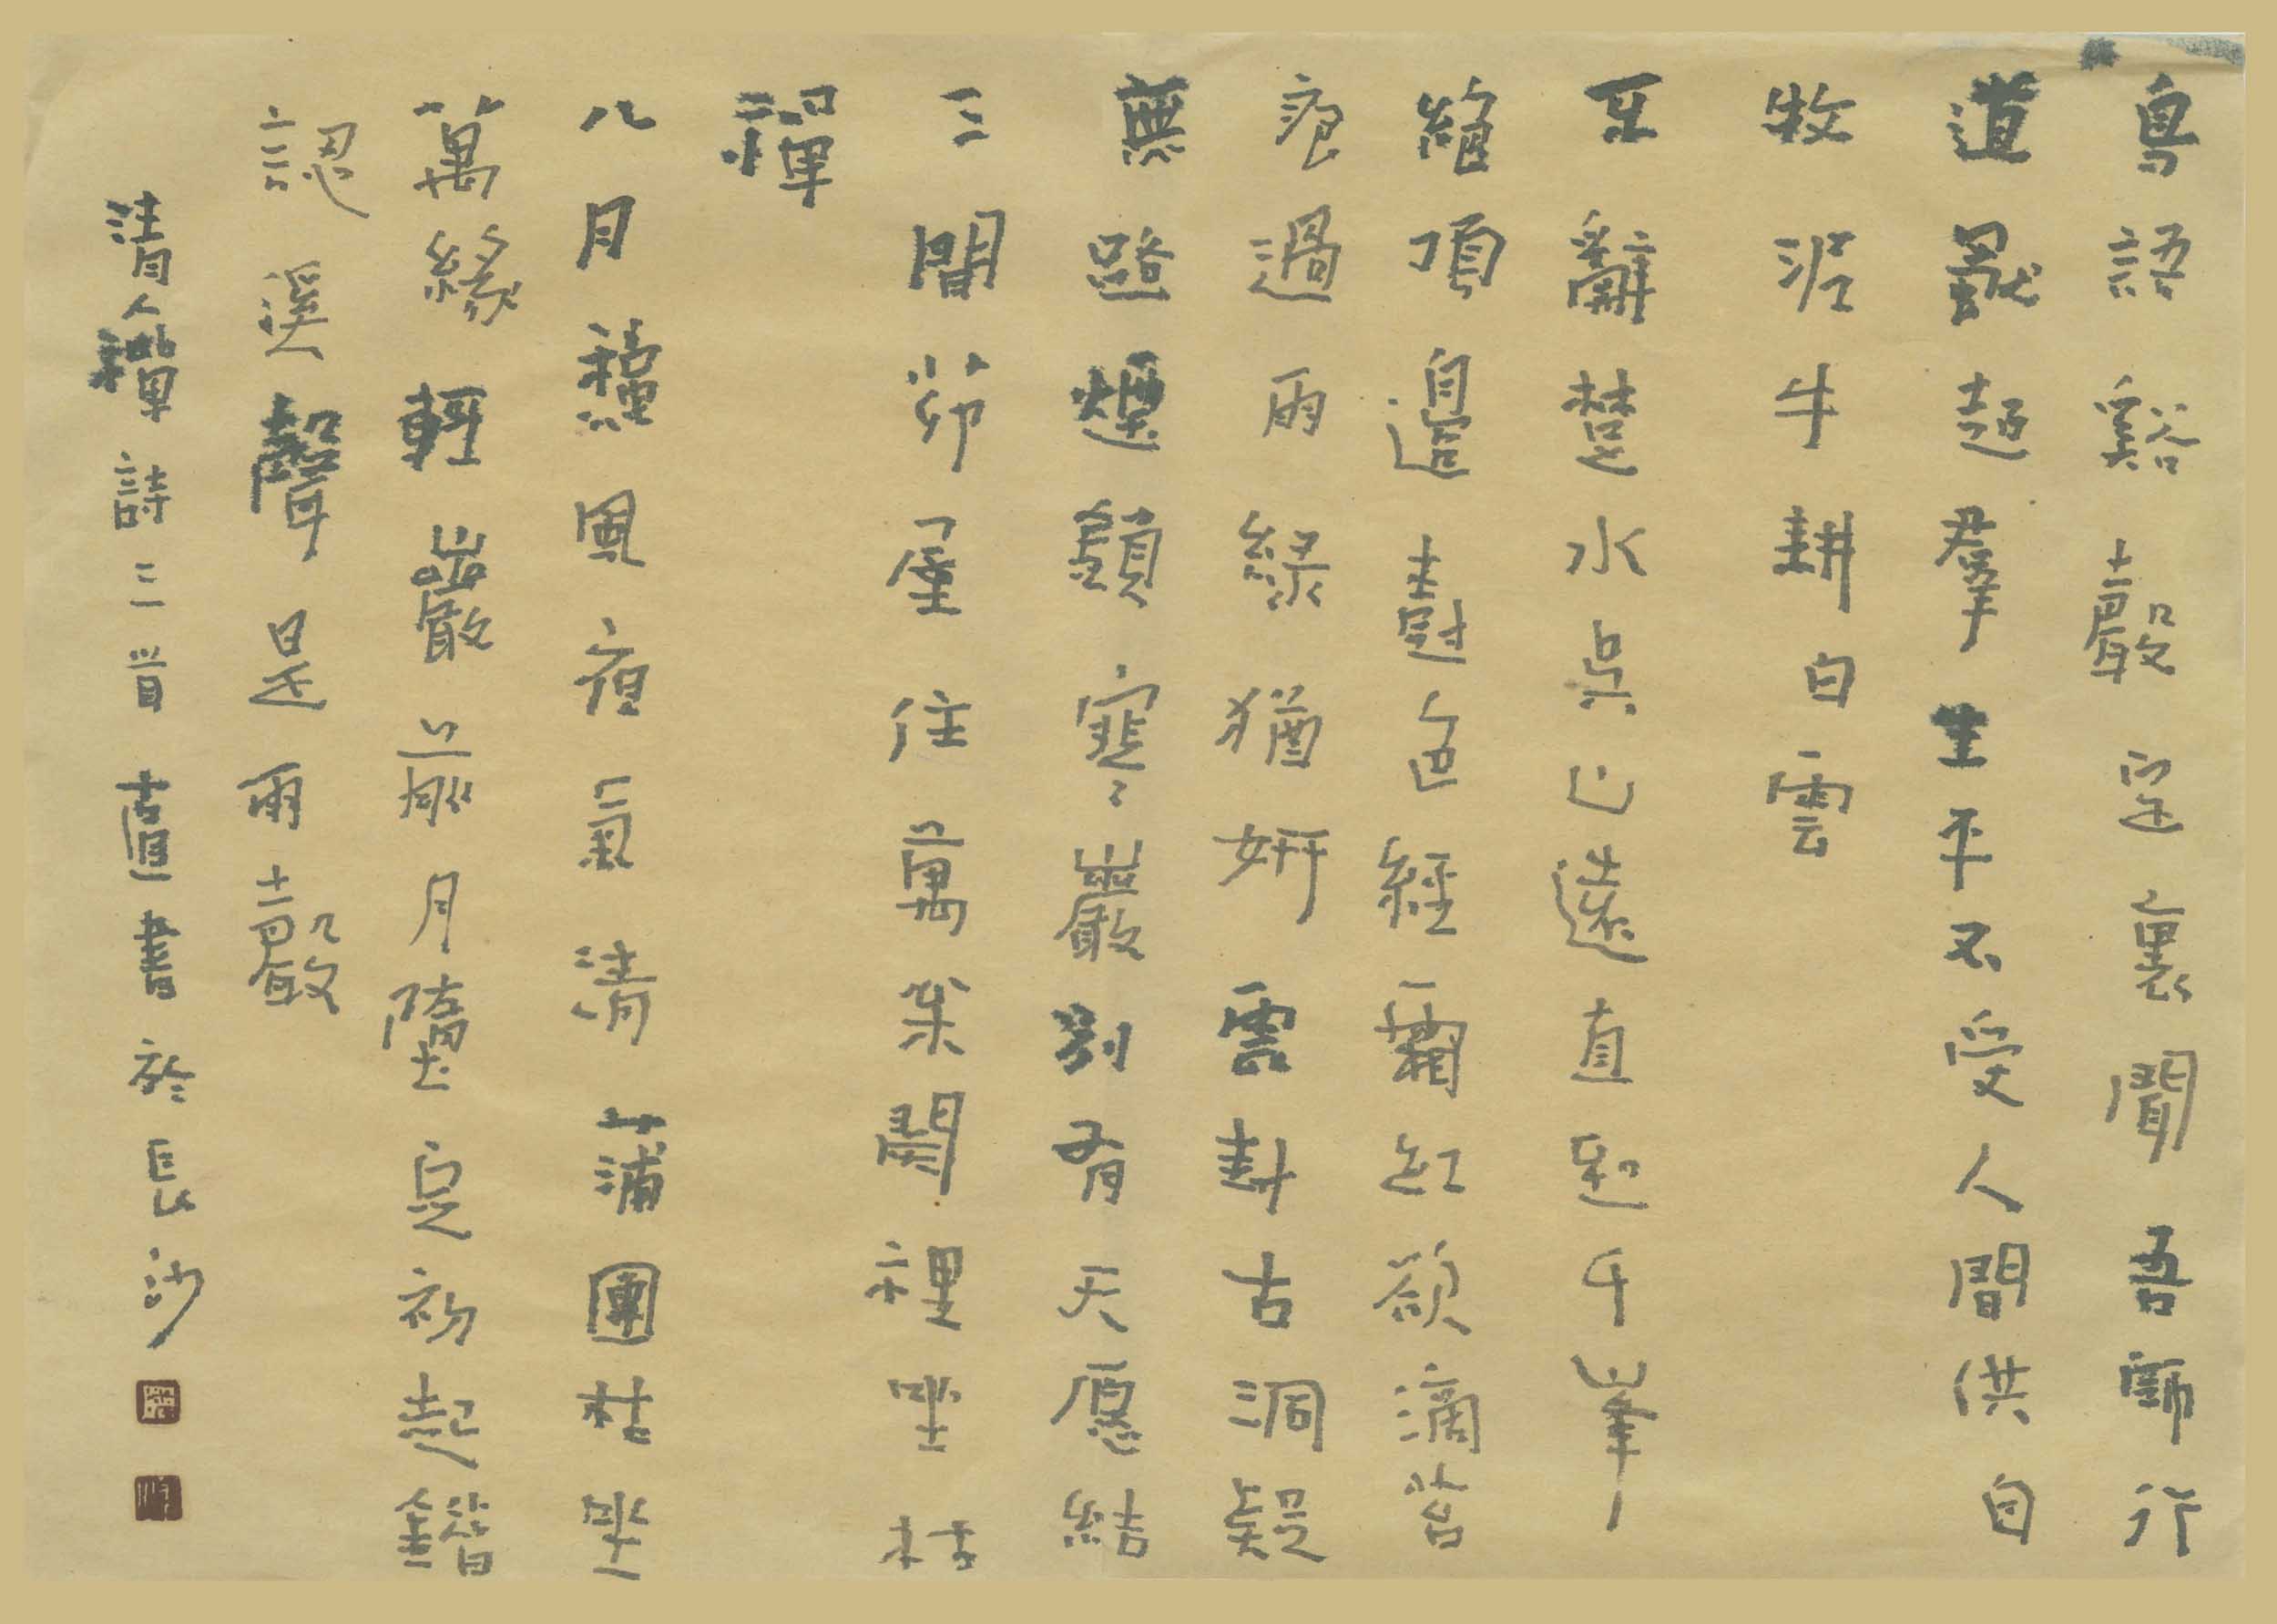 鳥語谿聲定裏聞吾師行
道最超羣生平不受人間供自
牧泥牛耕白雲
辭楚水吳山遠直到千峯
絕頂邊樹色經霜紅欲滴苔
痕過雨綠猶妍雲封古洞疑
無路煙鎖寒巖別有天願結
三間茆屋住萬枀關裡坐枯
禪
八月龝風夜氣清蒲團枯坐
萬緣輕巖前月墮定初起錯
認溪聲是雨聲
清人禪詩三首書於長沙